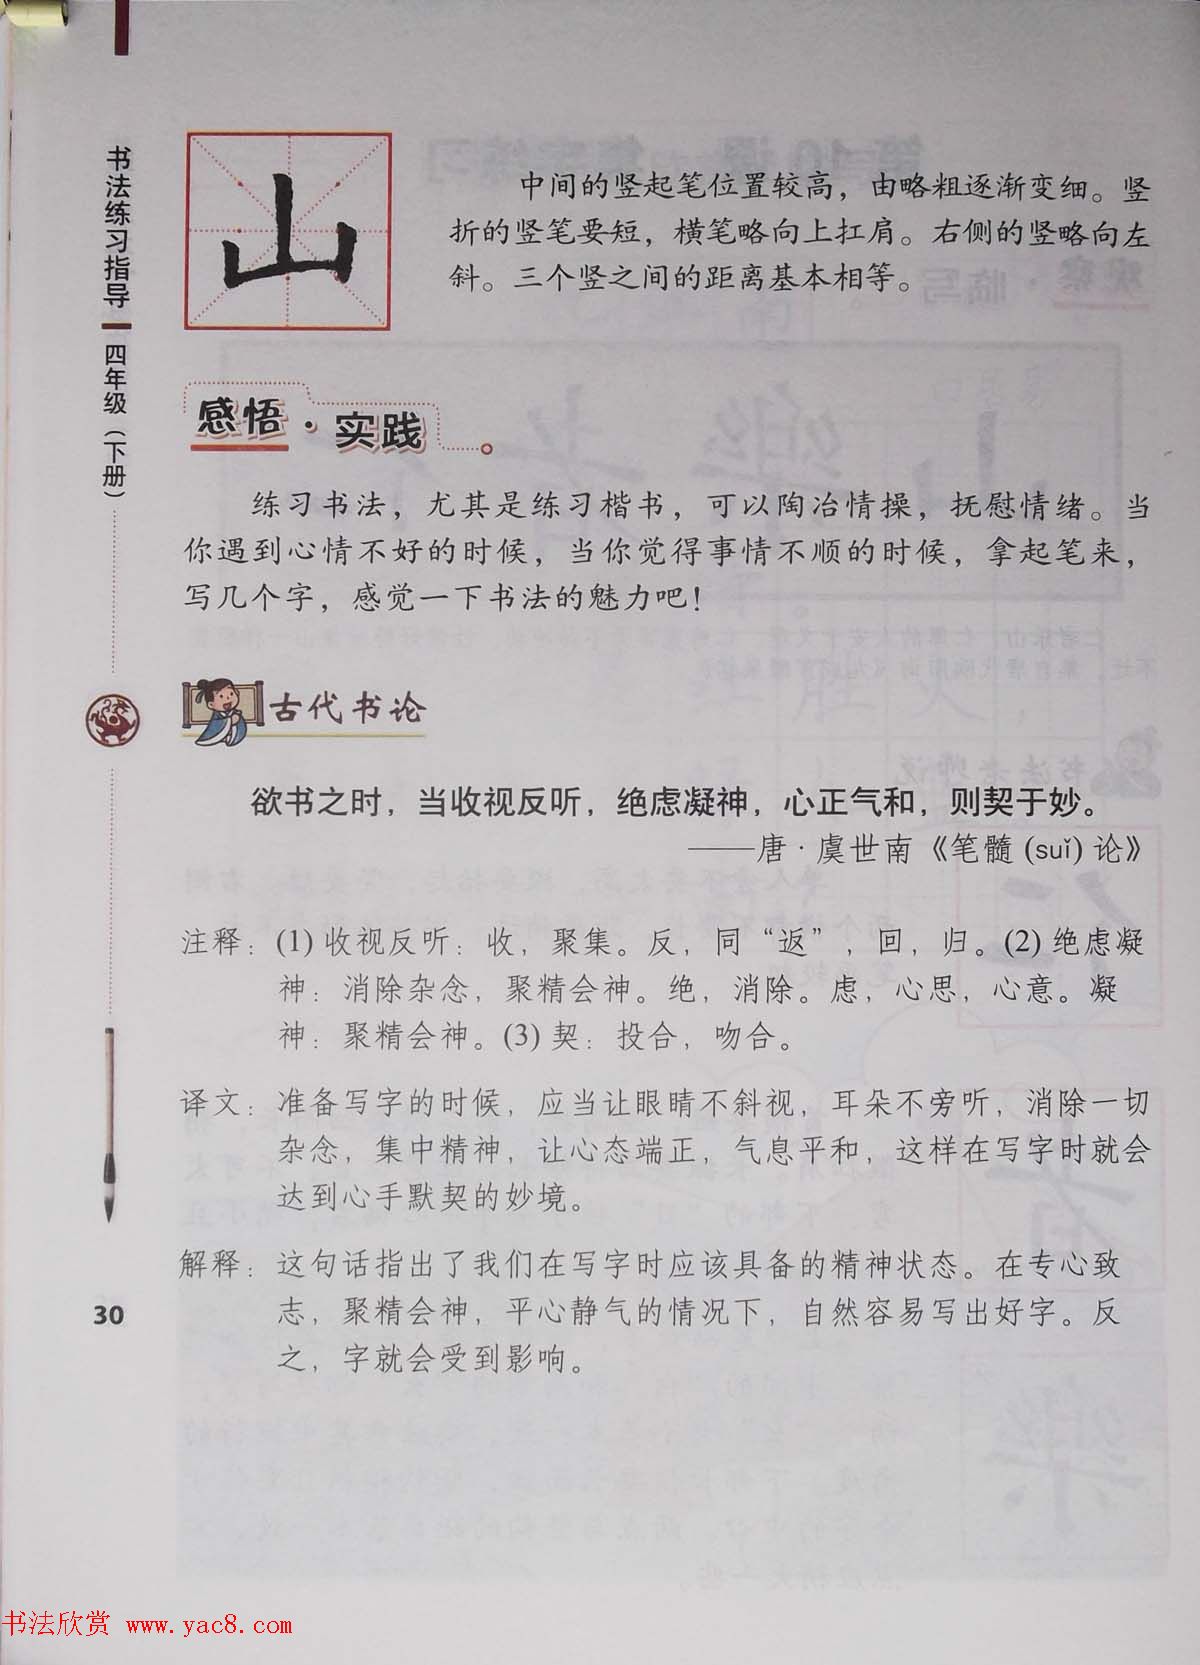 书法练习指导 四年级（下册）
山
中间的竖起笔位置较高，由略粗逐渐变细。竖
折的竖笔要短，横笔略向上扛肩。右侧的竖略向左
斜。三个竖之间的距离基本相等。
感悟·实践
练习书法，尤其是练习楷书，可以陶冶情操，抚慰情绪。当
你遇到心情不好的时候，当你觉得事情不顺的时候，拿起笔来，
写几个字，感觉一下书法的魅力吧！
古代书论
欲书之时，当收视反听，绝虑凝神，心正气和，则契于妙。
——唐·虞世南《笔髓(suǐ)论》
注释：(1)收视反听：收，聚集。反，同“返”，回，归。(2)绝虑凝
神：消除杂念，聚精会神。绝，消除。虑，心思，心意。凝
神：聚精会神。(3)契：投合，吻合。
译文：准备写字的时候，应当让眼睛不斜视，耳朵不旁听，消除一切
杂念，集中精神，让心态端正，气息平和，这样在写字时就会
达到心手默契的妙境。
解释：这句话指出了我们在写字时应该具备的精神状态。在专心致
志，聚精会神，平心静气的情况下，自然容易写出好字。反
之，字就会受到影响。
30
书法欣赏 www.yac8.com